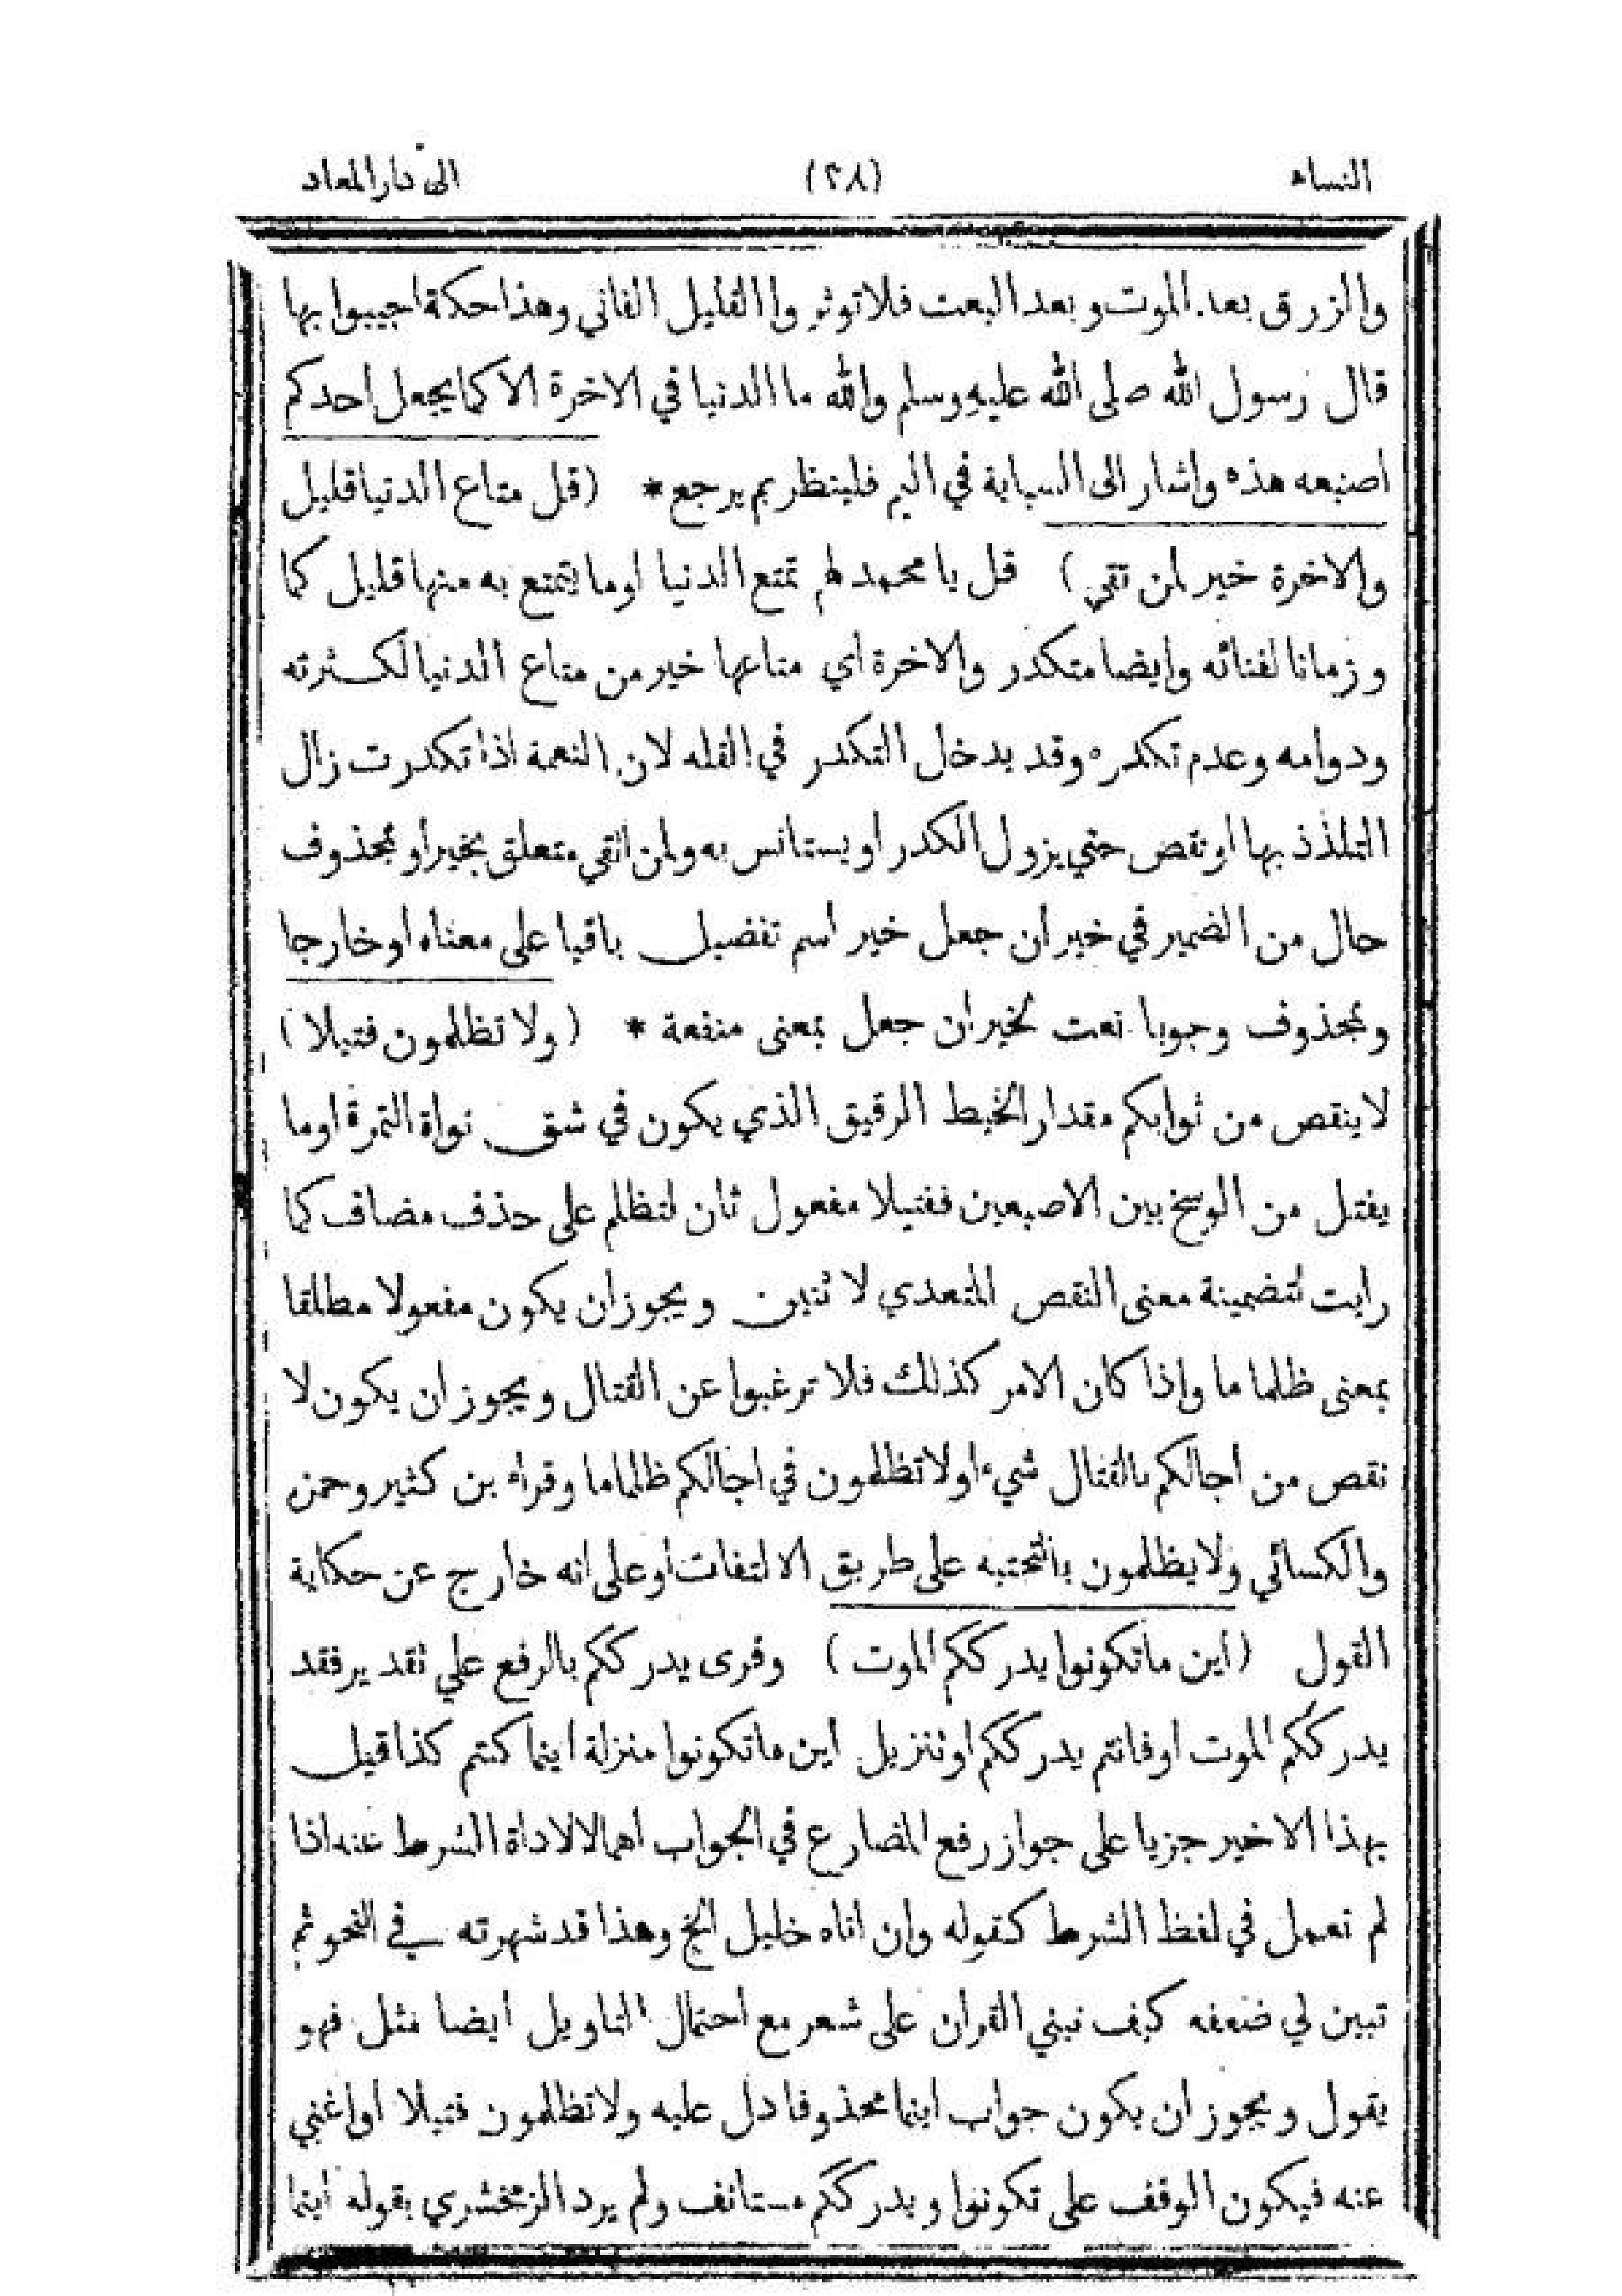 النساء (٢٨) الى دار المعاد
والزرق بعد الموت وبعد البعث فلا توثر وا القليل الفاني وهذا حكمة اجيبوا بها
قال رسول الله صلى الله عليه وسلم والله ما الدنيا في الاخرة الا كما يجعل احدكم
اصبعه هذه واشار الى السبابة في اليم فلينظر بم يرجع * (قل متاع الدنيا قليل
والاخرة خير لمن تقي) قل يا محمد لهم تمتع الدنيا او ما يتمتع به منها قليل كما
وزمانا لفنائه وايضا متكدر والاخرة اي متاعها خير من متاع الدنيا لكثرته
ودوامه وعدم تكدره وقد يدخل التكدر في القله لان النعمة اذا تكدرت زال
التلذذ بها او نقص حتي يزول الكدر او يستانس به ولمن اتقي متعلق بخير او بمحذوف
حال من الضمير في خير ان جعل خير اسم تفضيل باقيا على معناه او خارجا
وبمحذوف وجوبا نعت لخير ان جعل بمعنى منفعة * (ولا تظلمون فتيلا)
لا ينقص من ثوابكم مقدار الخيط الرقيق الذي يكون في شق نواة التمرة او ما
يفتل من الوسخ بين الاصبعين ففتيلا مفعول ثان لتظلم على حذف مضاف كما
رايت لتضمينة معنى النقص المتعدي لاثنين ويجوز ان يكون مفعولا مطلقا
بمعنى ظلما ما واذا كان الامر كذلك فلا ترغبوا عن القتال ويجوز ان يكون لا
نقص من اجالكم بالقتال شيء او لا تظلمون في اجالكم ظلما ما وقراء بن كثير وحمزه
والكسائي ولا يظلمون بالتحتيه على طريق الالتفات او على انه خارج عن حكاية
القول (اين ما تكونوا يدرككم الموت) وقرى يدرككم بالرفع علي تقدير فقد
يدرككم الموت او فانتم يدرككم او تنزيل اين ما تكونوا منزلة اينما كنتم كذا قيل
بهذا الاخير جزيا على جواز رفع المضارع في الجواب اهمالا لاداة الشرط عنه اذا
لم تعمل في لفظ الشرط كقوله وان اتاه خليل الخ وهذا قد شهرته في النحو ثم
تبين لي ضعفه كيف نبني القران على شعر مع احتمال التاويل ايضا مثل فهو
يقول ويجوز ان يكون جواب اينما محذوفا دل عليه ولا تظلمون فتيلا او اغني
عنه فيكون الوقف على تكونوا ويدرككم مستانف ولم يرد الزمخشري بقوله اينما